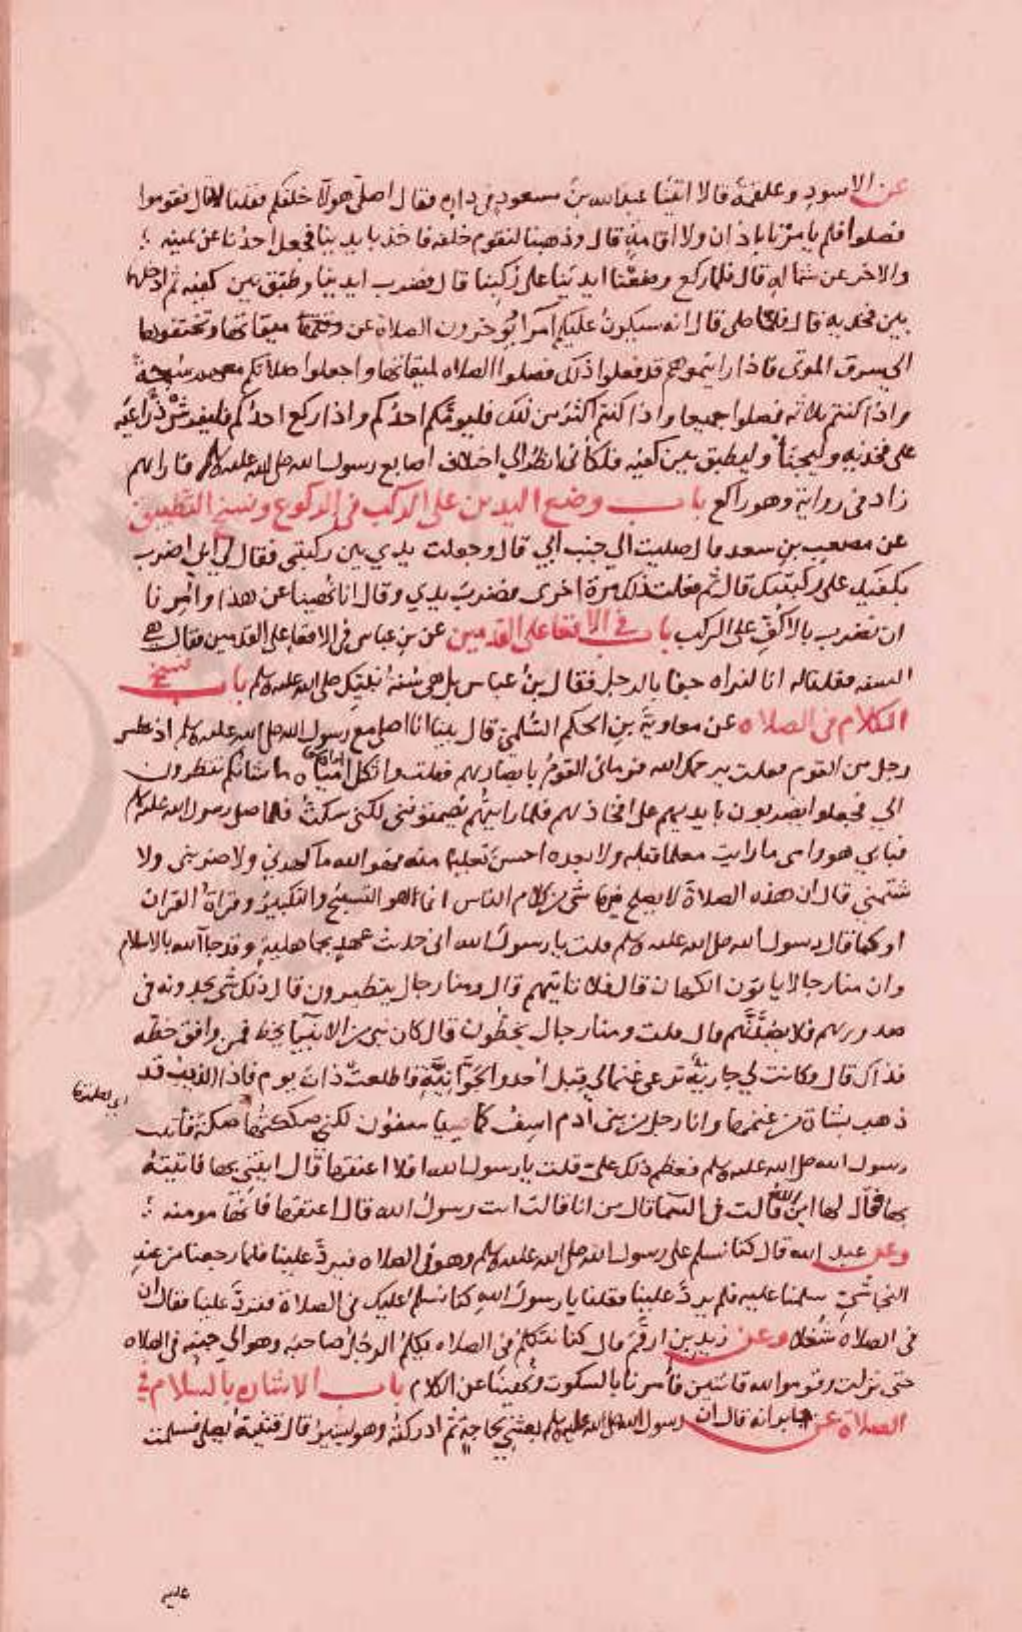 عن الاسود وعلقمة قالا اتينا عبد الله بن مسعود في داره فقال اصلى هولآ خلفكم فقلنا لا قال فقوموا
فصلوا فلم يامرنا باذان ولا اقامة قال وذهبنا لنقوم خلفه فاخذ بايدينا فجعل احدنا عن يمينه
والاخر عن شماله قال فلما ركع وضعنا ايدينا على ركبنا قال فضرب ايدينا وطبق بين كفيه ثم ادخلهما
بين فخذيه قال فلما صلى قال انه سيكون عليكم امرآ يوخرون الصلاة عن وقتها ميقاتها ويخنقونها
الى شرق الموتى فاذا رايتموهم قد فعلوا ذلك فصلوا الصلاه لميقاتها واجعلوا صلاتكم معهم سُبحة
واذا كنتم ثلاثه فصلوا جميعا واذا كنتم اكثر من ذلك فليومّكم احدكم واذا ركع احدكم فليفرش ذراعيه
على فخذيه وليجنأ وليطبق بين كفيه فلكأني انظر الي اختلاف اصابع رسول الله صلى الله عليه وسلم فاراهم
زاد في رواية وهو راكع باب وضع اليدين على الركب في الركوع ونسخ التطبيق
عن مصعب بن سعد قال صليت الي جنب ابي قال وجعلت يدي بين ركبتي فقال لي ابي اضرب
بكفيك على ركبتيك قال ثم فعلت ذلك مرة اخرى فضرب يدي وقال انا نُهينا عن هذا وامِرنا
ان نضرب بالاكُفّ على الركب باب في الاقعا على القدمين عن بن عباس في الاقعا على القدمين فقال هي
السنه فقلنا له انا لنراه جفا بالرجل فقال بنُ عباس بل هي سُنة نبيك صلى الله عليه وسلم باب نسخ
الكلام في الصلاه عن معاوية بن الحكم السُّلمي قال بينا انا اصلي مع رسول الله صلى الله عليه وسلم اذ عطس
رجل من القوم فقلت يرحمك الله فرماني القومُ بابصارهم فقلت واثكل امياه ما شانكم تنظرون
الي فجعلوا يضربون بايديهم على افخاذهم فلما رايتُهم يُصمتونني لكني سكتُ فلما صلى رسول الله صلى الله عليه وسلم
فبابي هو وامي ما رايت معلما قبله ولا بعده احسن تعليما منه فوالله ما كهرني ولا ضربني ولا
شتمني قال ان هذه الصلاة لا يصلح فيها شي من كلام الناس انما هو التسبيحُ والتكبيرُ وقراةُ القران
او كما قال رسول الله صلى الله عليه وسلم قلت يا رسول الله اني حديث عهدٍ بجاهلية وقد جا الله بالاسلام
وان منا رجالا ياتون الكهان قال فلا تاتِهم قال ومنا رجال يتطيرون قال ذلك شي يجدونه في
صدورهم فلا يصُدَّنَّهم قال قلت ومنا رجال يخُطّون قال كان نبي من الانبيا يخط فمن وافق خطه
فذاك قال وكانت لي جارية ترعى غنما لي قِبل اُحد والجوّانِيَّةِ فاطلعتُ ذات يوم فاذا الذيب قد
ذهب بشاة من غنمها وانا رجل من بني ادم اسفُ كما ياسفون لكني صككتُها صكة فاتيت
رسول الله صلى الله عليه وسلم فعظم ذلك علىَّ قلت يا رسول الله افلا اعتقها قال ايتني بها فاتيته
بها فقال لها اين الله قالت في السمآ قال من انا قالت انت رسول الله قال اعتقها فانها مومنه
وعن عبد الله قال كنا نسلم على رسول الله صلى الله عليه وسلم وهو في الصلاه فيردُّ علينا فلما رجعنا من عند
النجاشيّ سلمنا عليه فلم يردَّ علينا فقلنا يا رسول اللهِ كنا نسلم عليك في الصلاة فتردُّ علينا فقال ان
في الصلاه شُغلا وعن زيد بن ارقم قال كنا نتكلمُ في الصلاه يكلمُ الرجلُ صاحبَه وهو الي جنبِه في الصلاه
حتى نزلت وقوموا لله قانتين فأمرنا بالسكوت ونُهينا عن الكلام باب الاشاره بالسلام في
الصلاة عن جابر انه قال ان رسول الله صلى الله عليه وسلم بعثني لحاجةٍ ثم ادركته وهو يسير قال قتيبةُ يُصلي فسلمت
عليه